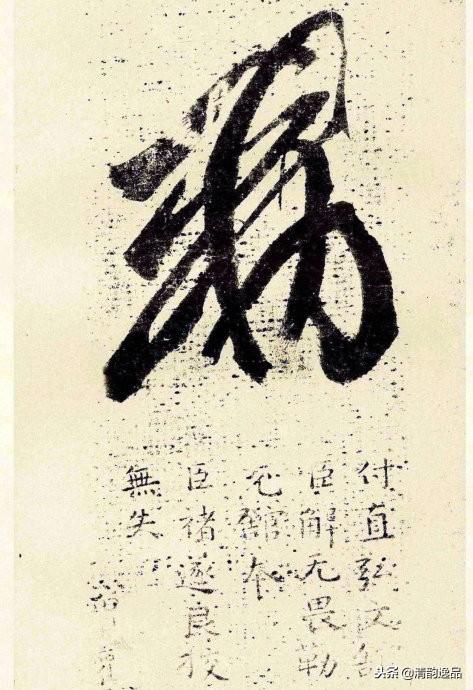 勅
付直弘文館
臣解无畏勒
充館本
臣褚遂良校
無失
头条 @清韵逸品